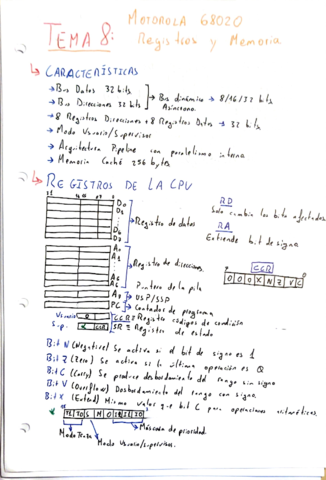 TEMA 8: MOTOROLA 68020
Registros y Memoria
CARACTERÍSTICAS
→ Bus Datos 32 bits
→ Bus Direcciones 32 bits
→ Bus dinámico → 8/16/32 bits
Asíncrono.
→ 8 Registros Direcciones + 8 Registros Datos → 32 bits
→ Modo Usuario/Supervisor
→ Arquitectura Pipeline con paralelismo interno
→ Memoria Caché 256 bytes
REGISTROS DE LA CPU
31
D0
D1
D6
D7
→ Registro de datos
RD
Solo cambia los bits afectados
RA
Extiende bit de signo
A0
A1
A6
→ Registro de direcciones
Puntero de la pila
A7 → USP/SSP
PC → Contador de programa
CCR
0 0 0 X N Z V C
Usuario 0 CCR = Registro códigos de condición
S.p. CCR SR = Registro de estado
Bit N (Negative) Se activa si el bit de signo es 1
Bit Z (Zero) Se activa si la última operación es 0
Bit C (Carry) Se produce desbordamiento del rango sin signo
Bit V (Overflow) Desbordamiento del rango con signo.
Bit X (Extend) Mismo valor que bit C para operaciones aritméticas.
T1 T0 S M 0 I2 I1 I0
→ Máscara de prioridad.
Modo Traza
Modo Usuario/supervisor.